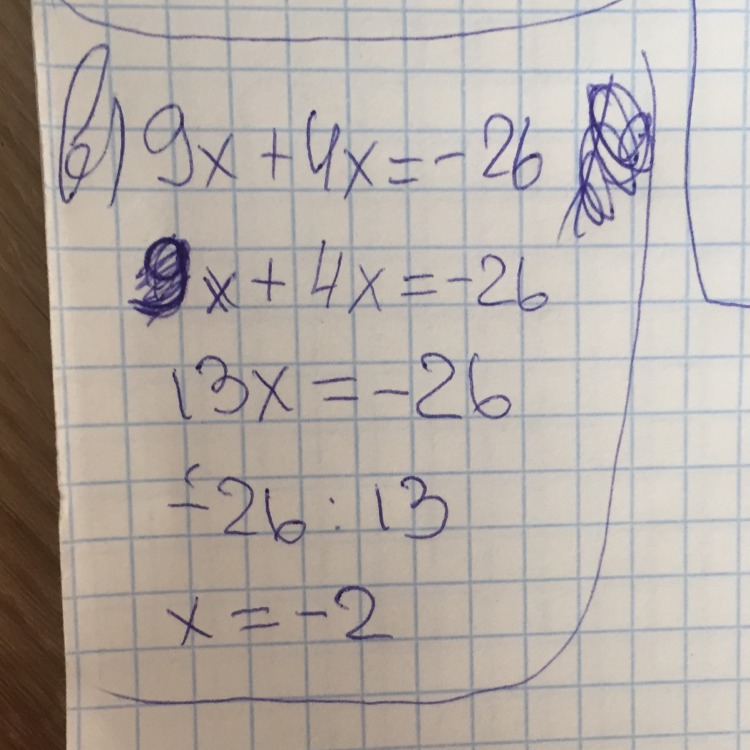 в) 9x + 4x = -26
9x + 4x = -26
13x = -26
-26 : 13
x = -2